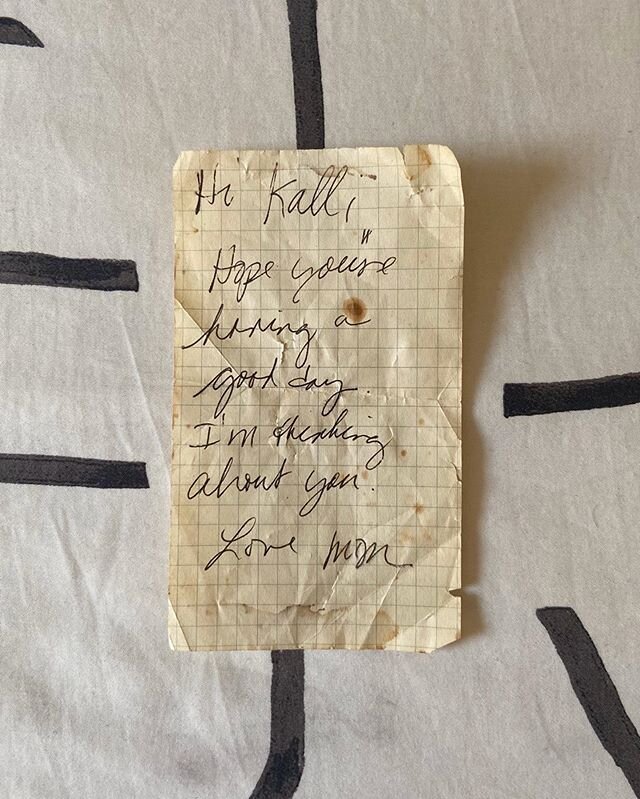 Hi Kalli
Hope you're
having a
good day.
I'm thinking
about you.
Love mom